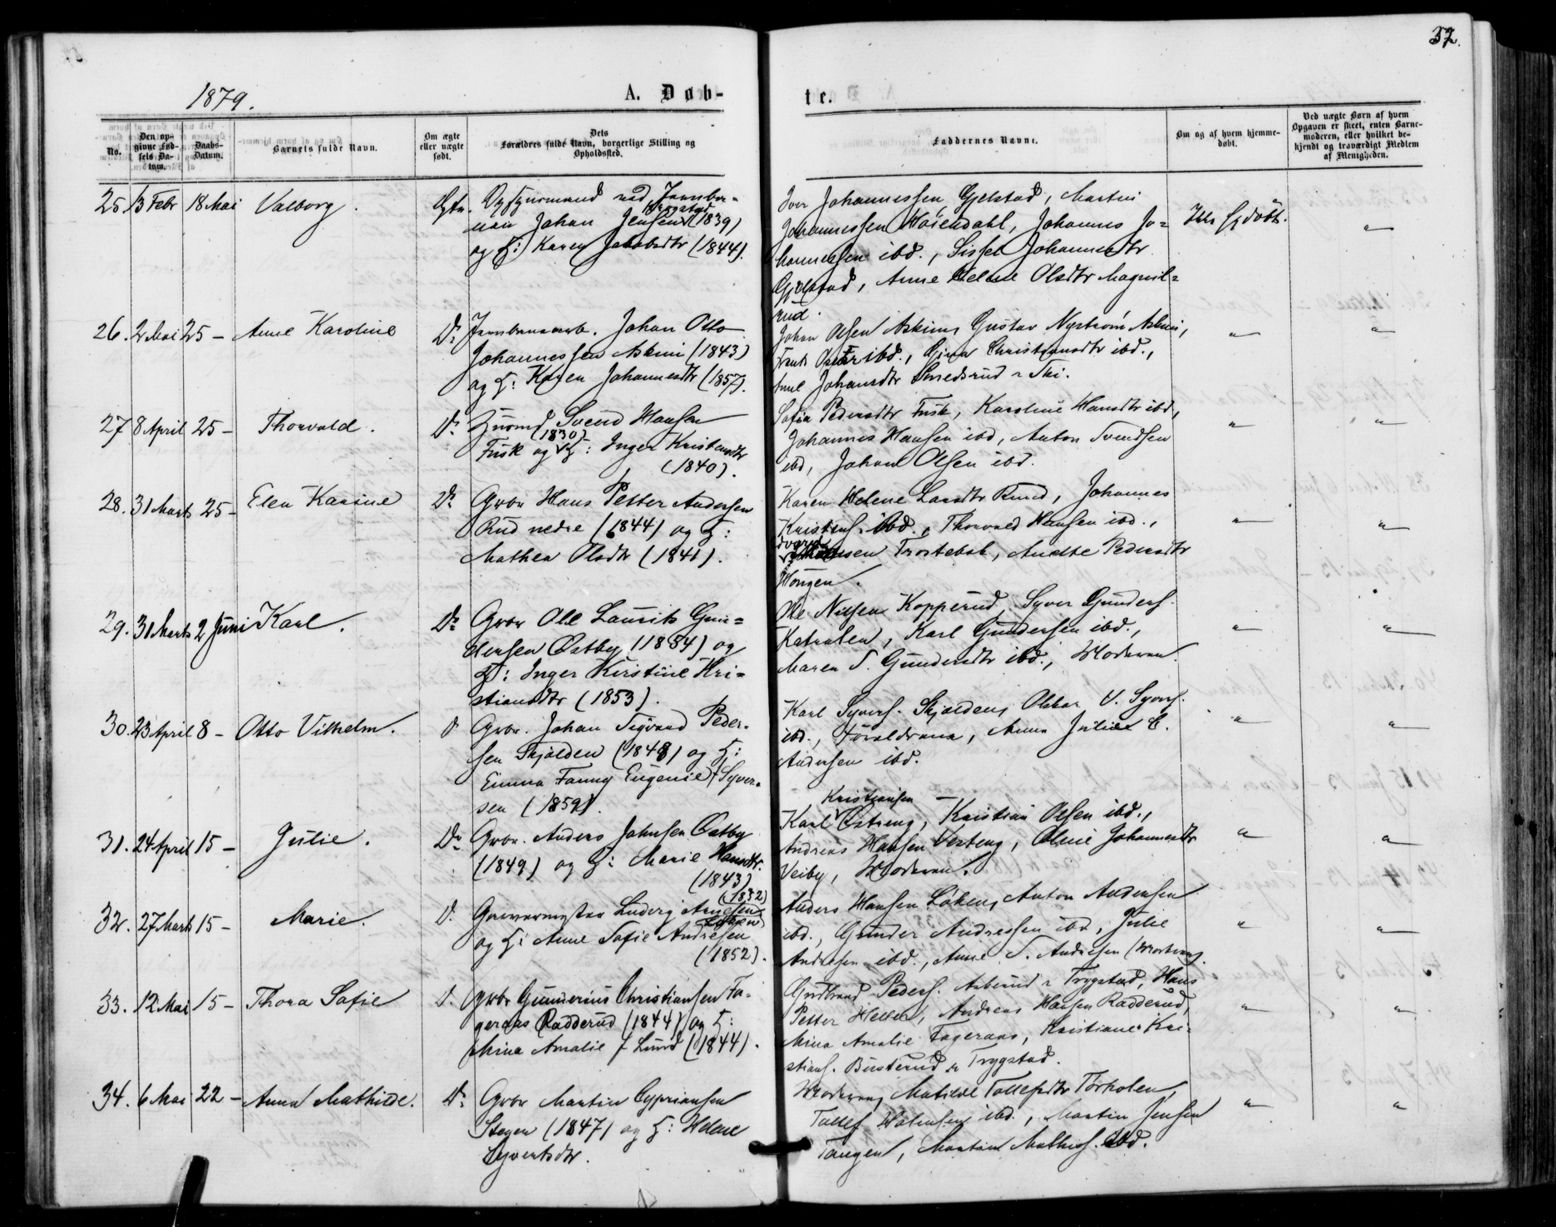 37.
1879.
A. Døb-
te.
No.
Den op-
givne Fød-
sels Da-
tum.
Daabs-
Datum.
Barnets fulde Navn.
Om ægte
eller uægte
født.
Dets
Forældres fulde Navn, borgerlige Stilling og
Opholdssted.
Faddernes Navne.
Om og af hvem hjemme-
døbt.
Ved uægte Børn af hvem
Opgaven er skeet, enten Barne-
moderen, eller hvilket be-
kjendt og troværdigt Medlem
af Menigheden.
25 13 Febr 18 Mai Valborg.
ved Jernba-
nen Johan Jensen (1839)
og H: Karen Jakobsdtr (1844).
Iver Johannessen Gjelstad, Martin
Johannessen Høiendahl, Johannes Jo-
hannessen ibd., Sissel Johannesdtr
Gjelstad, Anne Helene Olsdtr Magnil-
rud.
Ikke hjdøbt. "
26. 2 Mai 25 - Anne Karoline Do Jernbanearb. Johan Otto
Johannessen Askim (1843)
og H: Karen Johannesdtr (1857).
Johan Olsen Askim, Gustav Nystrøm Askim,
ibd., Gina Christiansdtr ibd.,
Johansdtr Smedsrud i Ski.
" "
27 8 April 25 - Thorvald. Do Husmd Svend Hansen
(1830)
Fusk og H: Inger Kristensdtr
(1840).
Sofie Pedersdtr Fusk, Karoline Hansdtr ibd,
Johannes Hansen ibd, Anton Svendsen
ibd, Johan Olsen ibd.
" "
28. 31 Marts 25 - Elen Karine Do Gbr Hans Petter Andersen
Rud nedre (1844) og H:
Mathea Olsdtr (1841).
Karen Helene Larsdtr Rud, Johannes
Kristens. ibd., Thorvald Hansen ibd.,
Trostebøl, Anette Pedersdtr
Hougen.
" "
29. 31 Marts 2 Juni Karl. Do Gbr Ole Laurits Gun-
dersen Østby (1854) og
H: Inger Kirstine Kri-
stiansdtr (1853).
Ole Nilsen Kopperud, Syver Gunders.
Katralen, Karl Gundersen ibd.,
Maren S. Gundersdtr ibd., Moderen.
" "
30. 23 April 8 - Otto Vilhelm. D Gbr. Johan Sigvard Peder-
sen Skjolden (1848) og H:
Emma Fanny Eugenie Syver-
sen (1859).
Karl Syvers. Skjolden, Oskar V. Syvers.
ibd., Forældrene, Anna Juliane C.
Andersen ibd.
" "
31. 24 April 15 - Julie. Do Gbr. Anders Johnsen Østby
(1849) og H: Marie Hansdtr.
(1843)
Kristiansen
Karl Østreng, Kristian Olsen ibd.,
Andreas Hansen Vesteng, Oline Johannesdtr
Veiby, Moderen.
" "
32. 27 Marts 15 - Marie. D. Garvermester Ludvig Arnesen
(1832)
Løken
og H: Anne Sofie Andresen
(1852).
Anders Hansen Løken, Anton Andersen
ibd., Gunder Andresen ibd, Julie
Andresen ibd., Anne S. Andresen (Moderen).
" "
33. 12 Mai 15 - Thora Sofie D. Gbr Gunnerius Christiansen Fa-
geraas Radderud (1844) og H:
Mina Amalie f Lund (1844).
Gudbrand Peders. Asterud i Trygstad, Hans
Petter Heller, Andreas Hansen Radderud,
Mina Amalie Fageraas, Kristiane Kri-
stians. Busterud i Trygstad.
" "
34. 6 Mai 22 - Anna Mathilde. Do Gbr Martin Cypriansen
Stegen (1847) og H: Helene
Syvertsdtr.
Moderen, Matilde Tollefsdtr Torholen,
Tollef Halvorsen ibd., Martin Jensen
Tangen, Martin Mathis. ibd.
" "